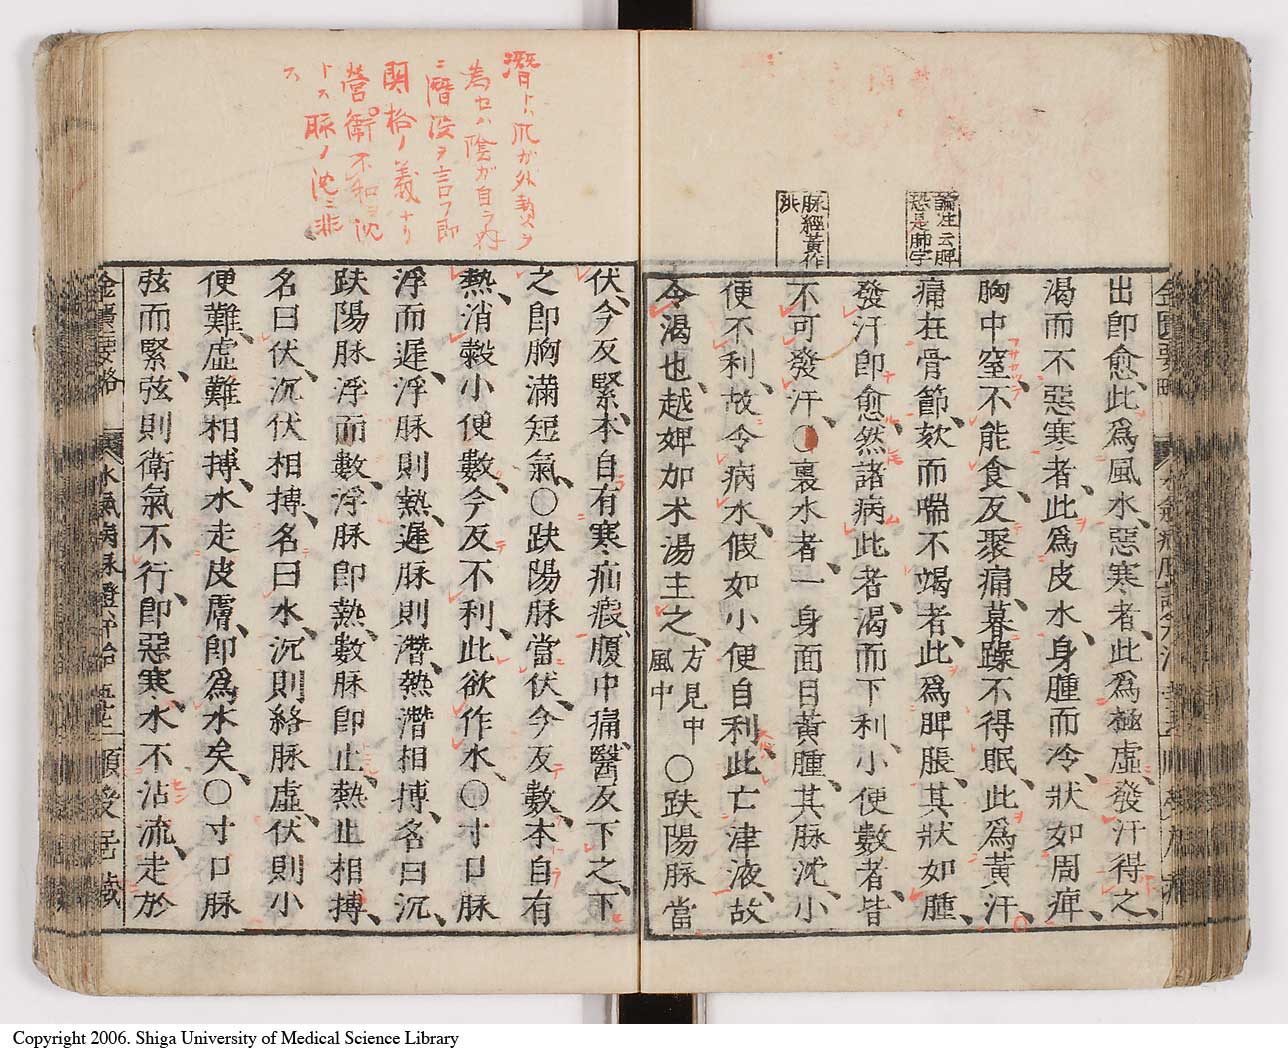 脉經黃作
洪
出即愈、此爲風水、惡寒者、此爲極虛、發汗得之、
渴而不惡寒者、此爲皮水、身腫而冷、狀如周痺、
胸中窒、不能食、反聚痛、暮躁不得眠、此爲黃汗、
痛在骨節、欬而喘不渴者、此爲脾脹、其狀如腫、
發汗即愈、然諸病此者、渴而下利、小便數者、皆
不可發汗、〇裏水者、一身面目黃腫、其脉沈、小
便不利、故令病水、假如小便自利、此亡津液、故
令渴也、越婢加术湯主之、方見中風中 〇趺陽脉當
潛トハ爪ガ外熱ヲ
為セハ陰ガ自ラ
ニ潛沒ヲ言フ即
関格ノ義ナリ
營衛不和ヲ沈
トス脉ノ沈ニ非
ス
伏、今反緊、本自有寒、疝瘕、腹中痛、醫反下之、下
之即胸滿短氣、〇趺陽脉當伏、今反數、本自有
熱、消穀、小便數、今反不利、此欲作水、〇寸口脉
浮而遲、浮脉則熱、遲脉則潛、熱潛相搏、名曰沉、
趺陽脉浮而數、浮脉即熱、數脉即止、熱止相搏、
名曰伏、沉伏相搏、名曰水、沉則絡脉虛、伏則小
便難、虛難相搏、水走皮膚、即爲水矣、〇寸口脉
弦而緊、弦則衛氣不行、即惡寒、水不沾流、走於
金匱要略 水氣病脉證并治 順受居藏